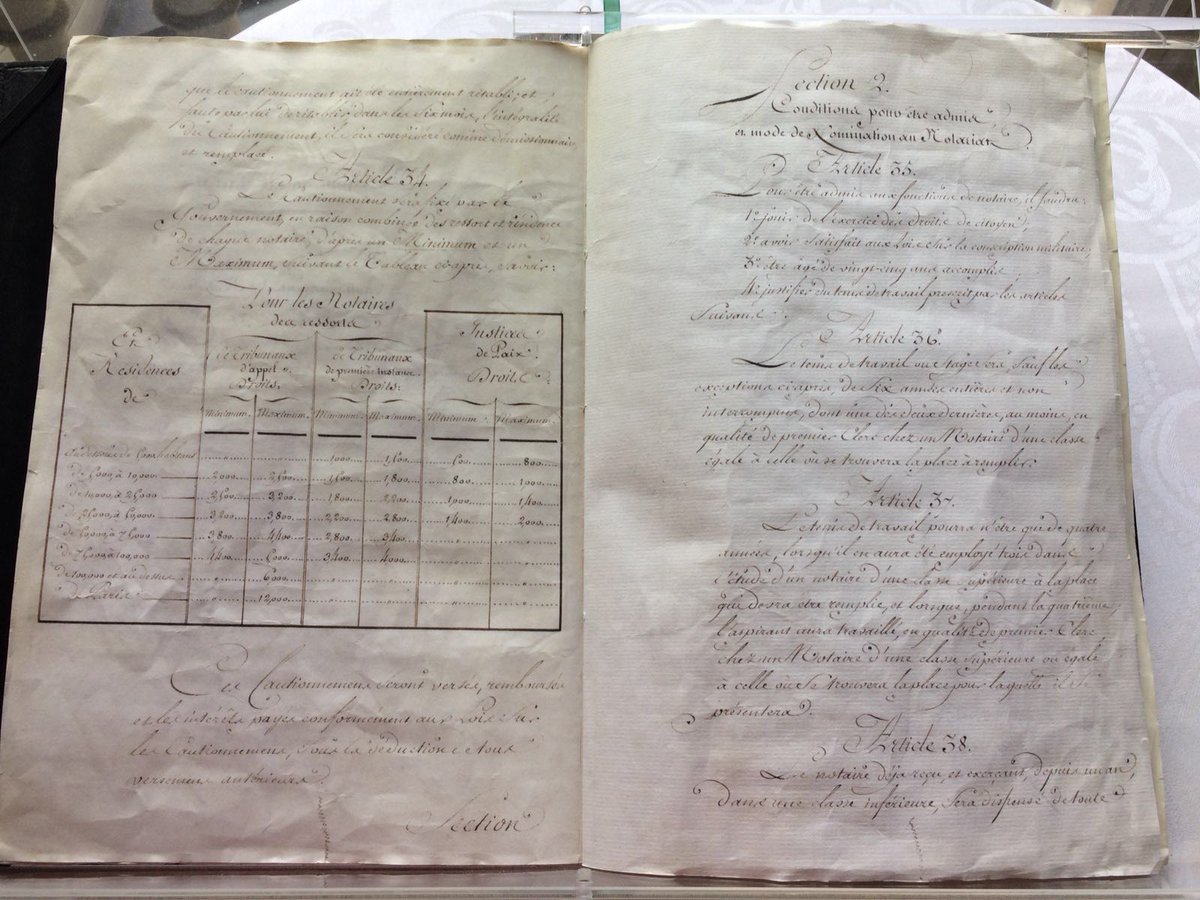 que le cautionnement ait été entièrement rétabli; et
faute par lui de rétablir dans les six mois, l'intégralité
du Cautionnement, il sera considéré comme démissionnaire,
et remplacé.
Article 34.
Le Cautionnement sera fixé par le
Gouvernement, en raison combinée des ressort et résidence
de chaque notaire, d'après un Minimum et un
Maximum, suivant le Tableau ci-après, Savoir:
Pour les Notaires
des ressorts
Et
Residences
de
de Tribunaux
d'appel
Droits.
de Tribunaux
de première instance
Droits:
Justices
de Paix.
Droits.
Minimum. Maximum. Minimum. Maximum. Minimum. Maximum.
Au dessous de 5,000 habitans " " 1000. 1,500. 500. 800.
de 5,000 à 10,000 2,000. 2,500. 1,500. 1,800. 800. 1,000.
de 10,000 à 25,000 2,500. 3,200. 1,800. 2,200. 1,000. 1,400.
de 25,000 à 50,000 3,200. 3,800. 2,200. 2,800. 1,400. 2,000.
de 50,000 à 75,000 3,800. 4,400. 2,800. 3,400. " "
de 75,000 à 100,000 4,400. 5,000. 3,400. 4,000. " "
de 100,000 et au dessus " 6,000. " " " "
à Paris " 12,000. " " " "
Ces Cautionnemens seront versés, remboursés
et les intérêts payés conformément aux Lois sur
les Cautionnemens, sous la déduction de tous
versemens antérieurs.
Section
Section 2.
Conditions pour être admis
et mode de Nomination au Notariat.
Article 35.
Pour être admis aux fonctions de notaire, il faudra:
1.° jouir de l'exercice des droits de citoyen;
2.° avoir satisfait aux Lois sur la conscription militaire;
3.° être âgé de vingt-cinq ans accomplis;
4.° justifier du tems de travail prescrit par les articles
Suivans.
Article 36.
Le tems de travail ou stage sera, sauf les
exceptions ci-après, de Six années entières et non
interrompues, dont une des deux dernières, au moins, en
qualité de premier Clerc chez un Notaire d'une classe
égale à celle où se trouvera la place à remplir.
Article 37.
Le tems de travail pourra n'être que de quatre
années, lorsqu'il en aura été employé trois dans
l'étude d'un notaire d'une classe Supérieure à la place
qui devra être remplie, et lorsque, pendant la quatrième,
l'aspirant aura travaillé, en qualité de premier Clerc
chez un Notaire d'une classe Supérieure ou égale
à celle où Se trouvera la place pour laquelle il Se
présentera.
Article 38.
Le notaire déjà reçu, et exerçant, depuis un an,
dans une classe inférieure, Sera dispensé de toute